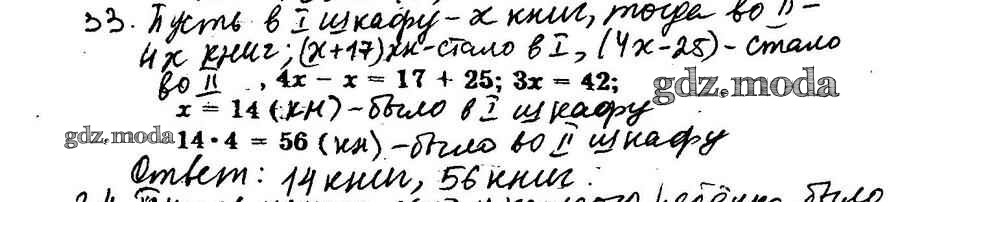 33. Пусть в I шкафу - x книг, тогда во II -
4x книг; (x+17) кн - стало в I, (4x-25) - стало
во II , 4x − x = 17 + 25; 3x = 42;
gdz.moda
x = 14 (кн) - было в I шкафу
gdz.moda 14 · 4 = 56 (кн) - было во II шкафу
Ответ: 14 книг, 56 книг.
было